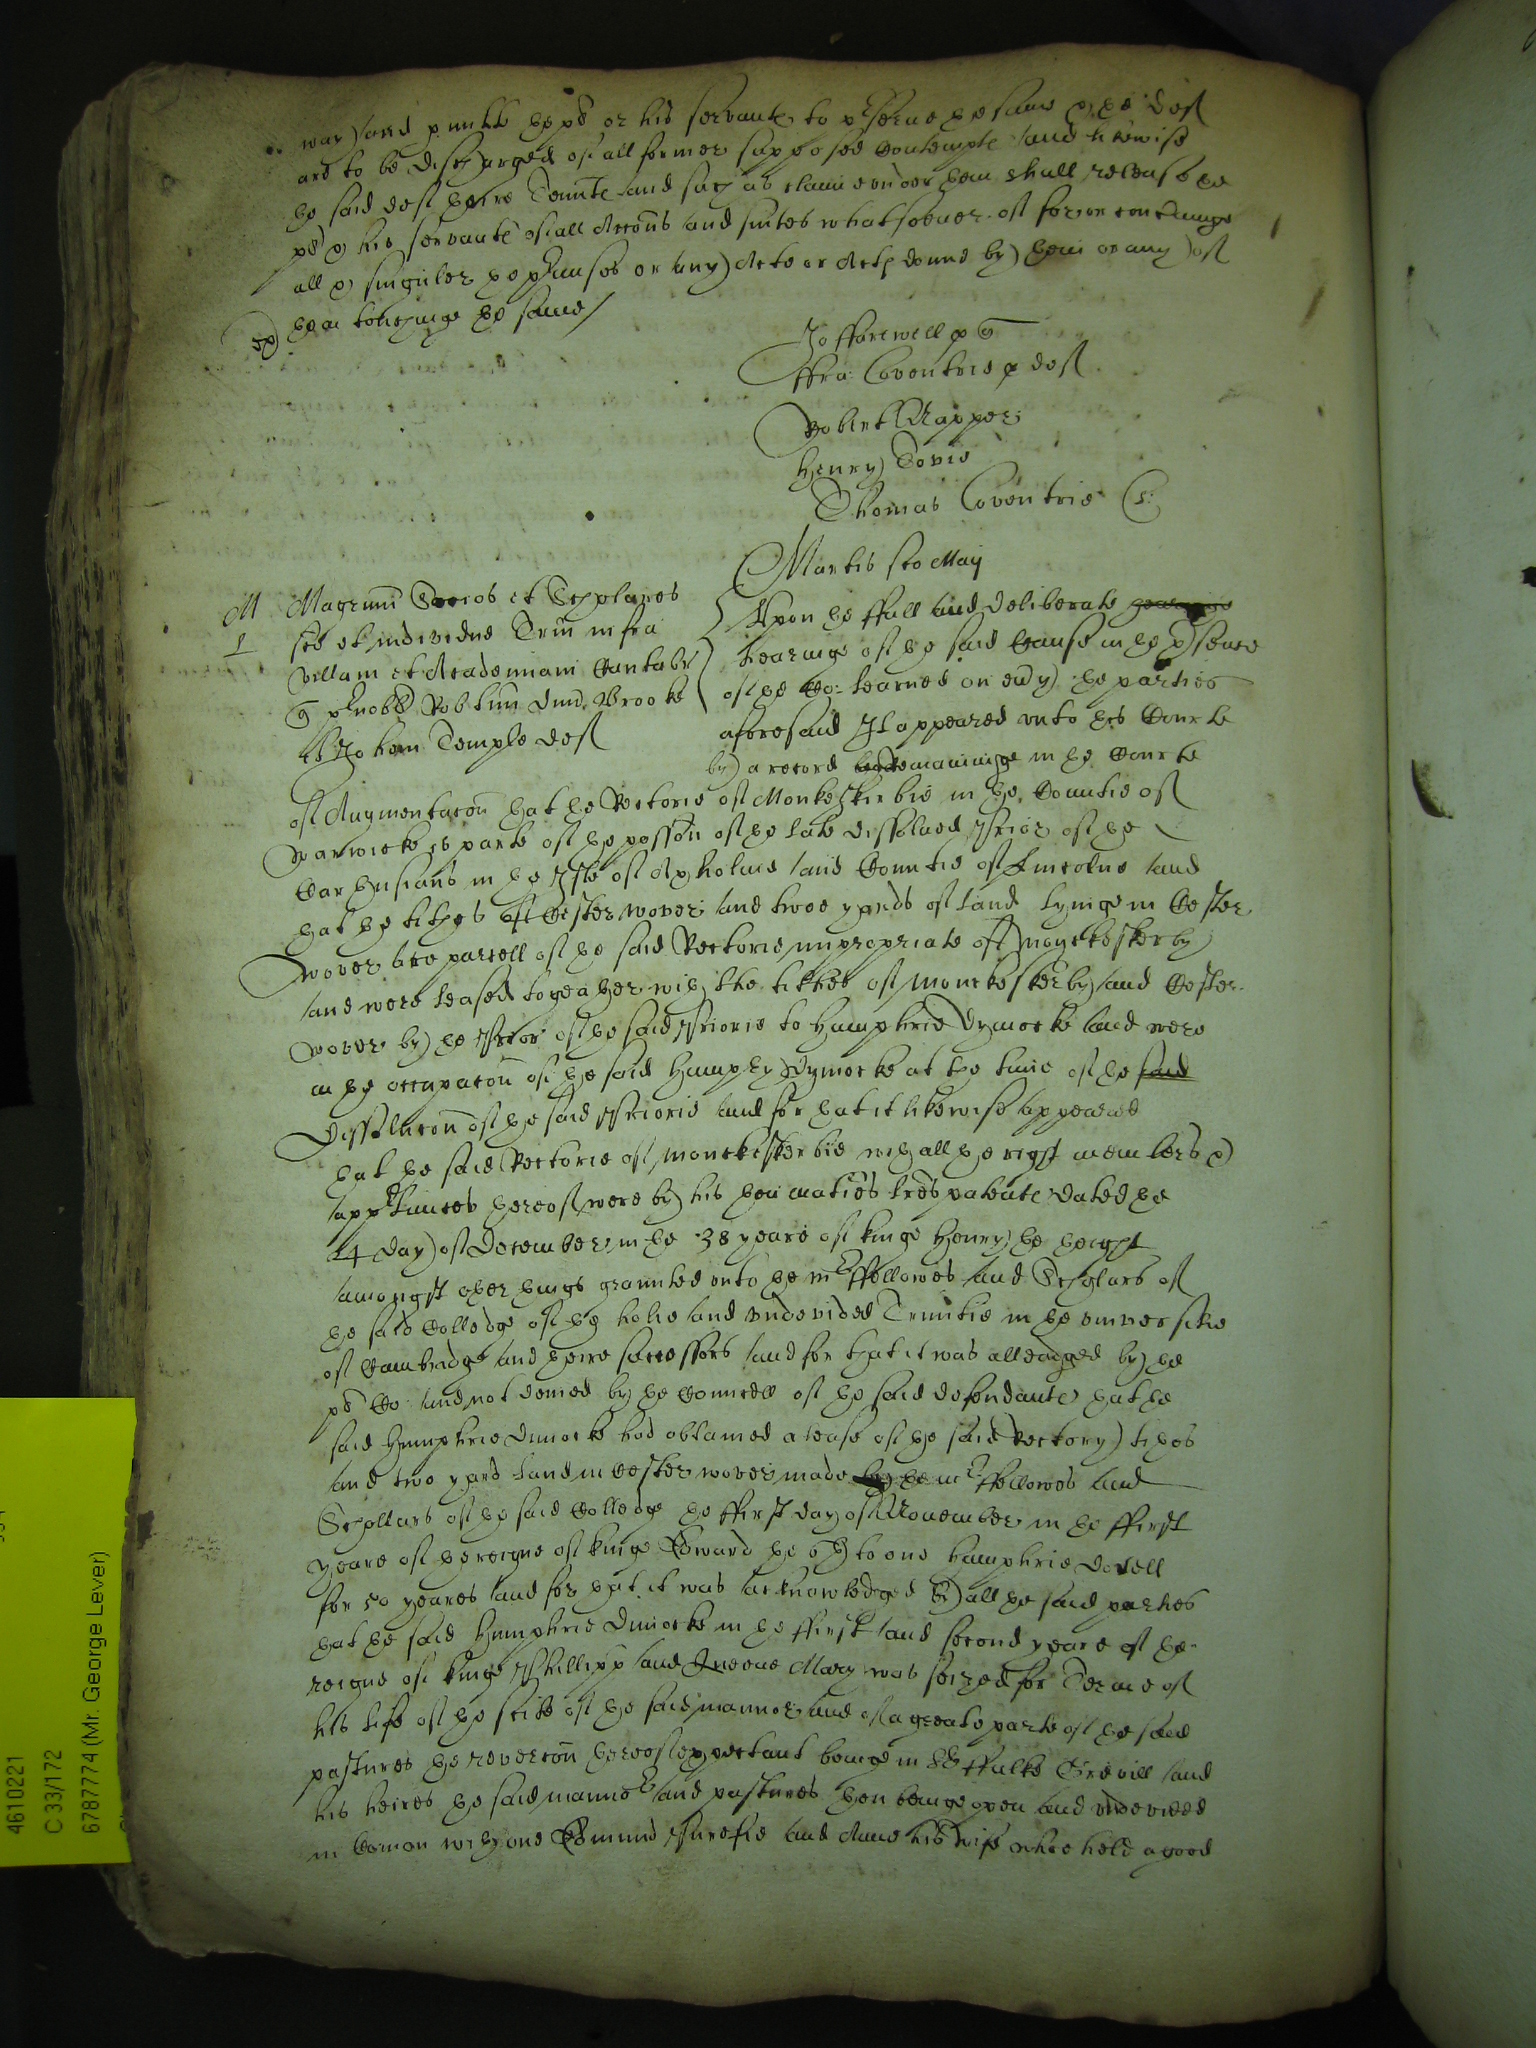 way) and pmitt the pl or his servantes to pserue the same & the def
are to be discharged of all former supposed Contempte and likewise
the said def theire Tennte and such as claime vnder them shall release the
pl & his servante of all Accons and suites whatsoeuer of for or concerninge
all & singuler the pmisses or any Acte or Acte donne by them or any of
them tochinge the same
Jo fforewell p Q
ffra: Coventrie p def
Robert Napper
Henry Dovie
Thomas Coventrie
Martis sco May
M Magrum Socios et Scholares
scê et individue Trin infra
villam et Academiam Cantabr
Q pnobb Robtum Dnum Brooke
et Johem Temple def
Vpon the full and deliberate
hearinge of the said Cause in the psence
of the Co: learned on eu'y the parties
aforesaid It appeared vnto this Courte
by a record remaininge in the Courte
of Augmentacon that the Rectorie of Monkeskirbie in the Countie of
Warwicke is parte of the posson of the late dissolued Prior of the
Carthusians in the Isle of Axholme and Countie of Lincolne and
that the tithes of Cesterwover and twoe yards of land lyinge in Cester
wover are parcell of the said Rectorie impropriate of Monckeskerby
and were leased togeather with the tithes of Monckeskerby and Cester
wover by the Prior of the said Priorie to Humphrie Dymocke and were
in the occupacon of the said Humphry Dymocke at the time of the said
Dissolucon of the said Priorie and for that it likewise appeared
that the said Rectorie of Monckeskerbie with all the right members &
appurtinces thereof were by his then maties lres patente dated the
24 day of December in the 38 yeare of kinge Henry the height
amongst other things graunted vnto the mr ffellowes and Scholars of
the said Colledge of the holie and vndevided Trinitie in the vniversitie
of Cambridge and theire successors and for that it was alleadged by the
pl Co: and not denied by the Councell of the said defendante that the
said Humphrie Dimocke had obtained a lease of the said Rectory tithes
and two yard land in Cesterwover made by the mr ffellowes and
Schollars of the said Colledge the ffirst day of November in the ffirst
yeare of the reigne of kinge Edward the 6th to one Humphrie Dovell
for 50 yeares and for that it was acknowledged by all the said parties
that the said Humphrie Dimocke in the ffirst and second yeare of the
reigne of kinge Phillipp and Queene Mary was seized for Terme of
his life of the scite of the said mannor and of a greate parte of the said
pastures the revercon thereof expectant beinge in Sr ffulke Grevill and
his heires the said mannor and pastures then beinge open and vndevided
in Comon with one Edmund Purefie and Anne his wife whoe held a good
4610221
C 33/172
6787774 (Mr. George Lever)